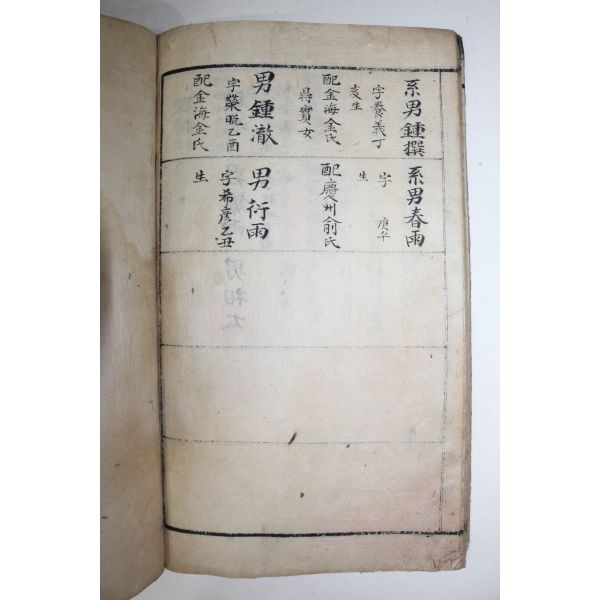 系男鍾撰
字養義丁
亥生
配金海金氏
得寶女
男鍾澈
字榮晥乙酉
配金海金氏
系男春雨
字 庚午
生
配慶州俞氏
男衍雨
字希彦乙丑
生